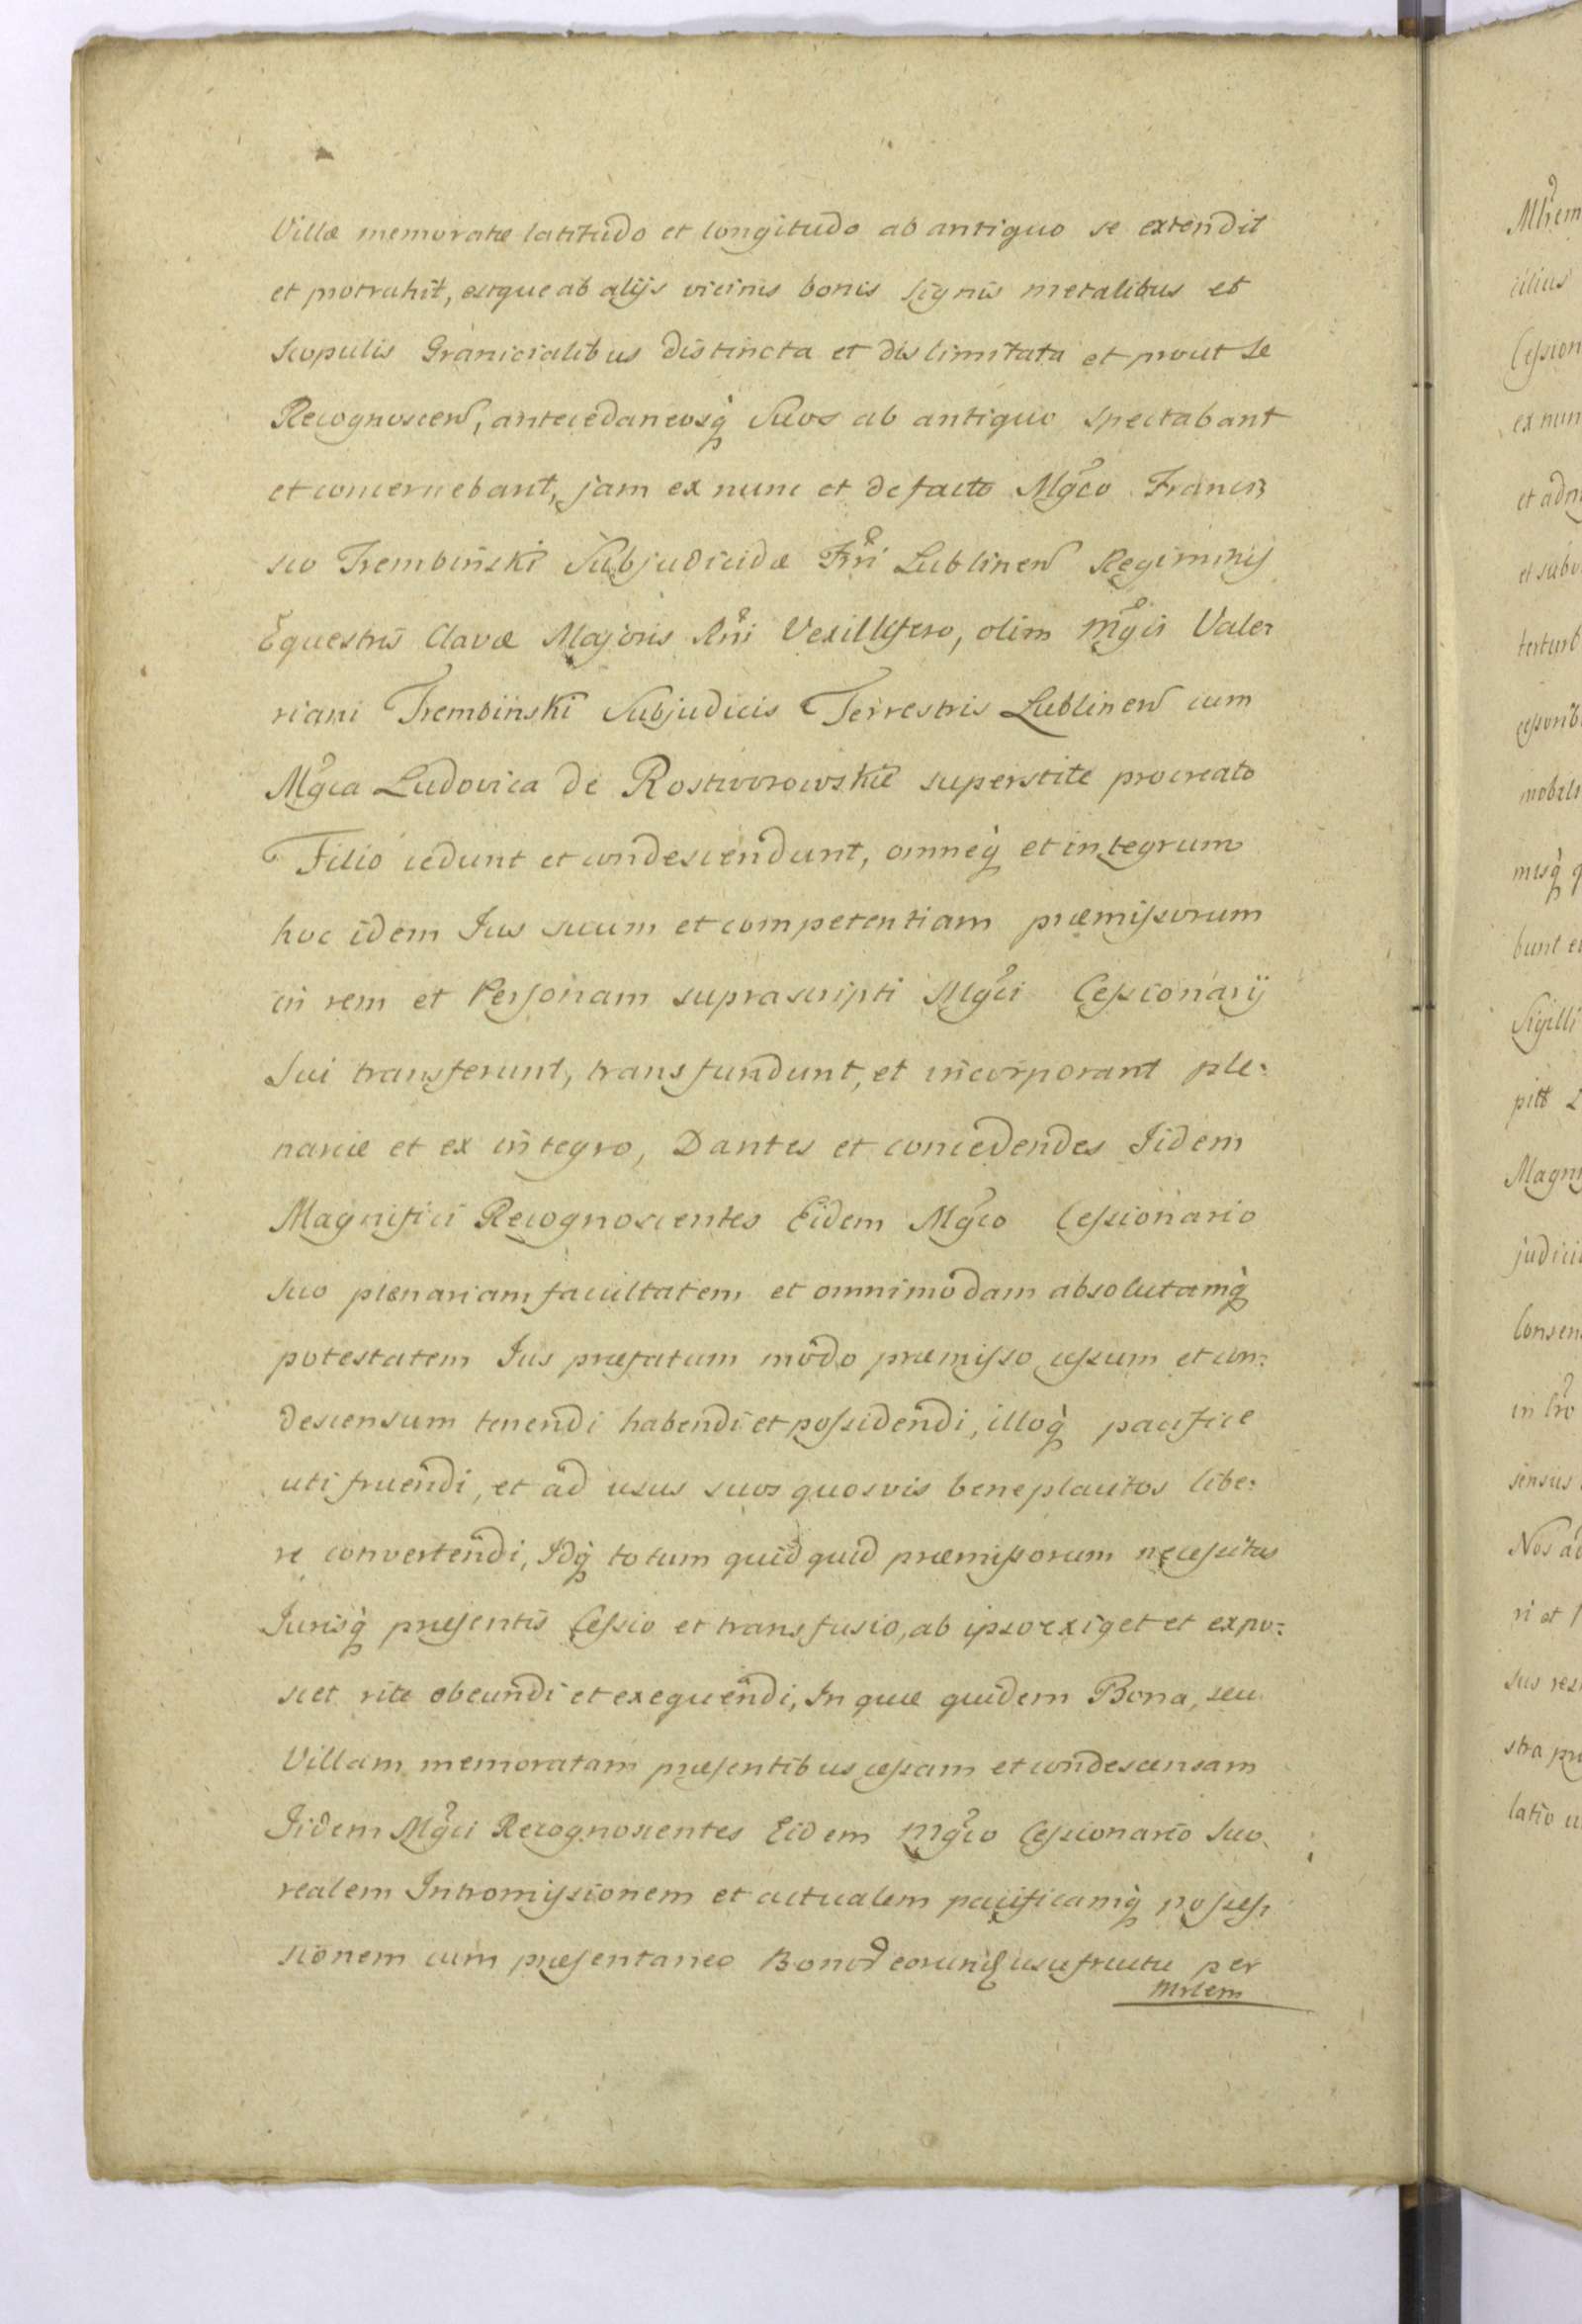 Villæ memoratæ latitudo et longitudo ab antiquo se extendit
et protrahit, estque ab alijs vicinis bonis signis metalibus et
Scopulis Granicialibus distincta et dislimitata et prout Se
Recognoscen, antecedaneosq̀ Suos ab antiquo spectabant
et concernebant, jam ex nunc et de facto Mgco Francis
sco Trembinski Subjudicidæ Trri Lublinen Regiminis
Equestris Clavæ Majoris Rni Vexillifero, olim Mgci Vale:
riani Trembinski Subjudicis Terrestris Lublinen cum
Mgca Ludovica de Rostworowskie superstite procreato
Filio cedunt et condescendunt, omneq̀ et integrum
hoc idem Jus suum et competentiam præmissorum
in rem et Personam suprascripti Mgci Cessionarij
Sui transferunt, transfundunt, et incorporant ple:
narie et ex integro, Dantes et concedendes Jidem
Magnifici Recognoscentes Eidem Mgco Cessionario
Suo plenariam facultatem et omnimodam absolutamq̀
potestatem Jus præfatum modo præmisso cessum et con:
descensum tenendi habendi et possidendi, illoq̀ pacifice
uti fruendi, et ad usus suos quosvis beneplacitos libe:
re convertendi, Idq̀ totum quidquid præmissorum necessitas
Jurisq̀ præsentis Cessio et transfusio, ab ipso exiget et expo:
scet rite obeundi et exequendi, In quæ quidem Bona, seu
Villam memoratam præsentibus cessam et condescensam
Jidem Mgci Recognoscentes Eidem Mgco Cessionario Suo
realem Intromissionem et actualem pacificamq̀ posses:
sionem cum præsentaneo Bonor eorumq̀ usufructu per
Mrlem